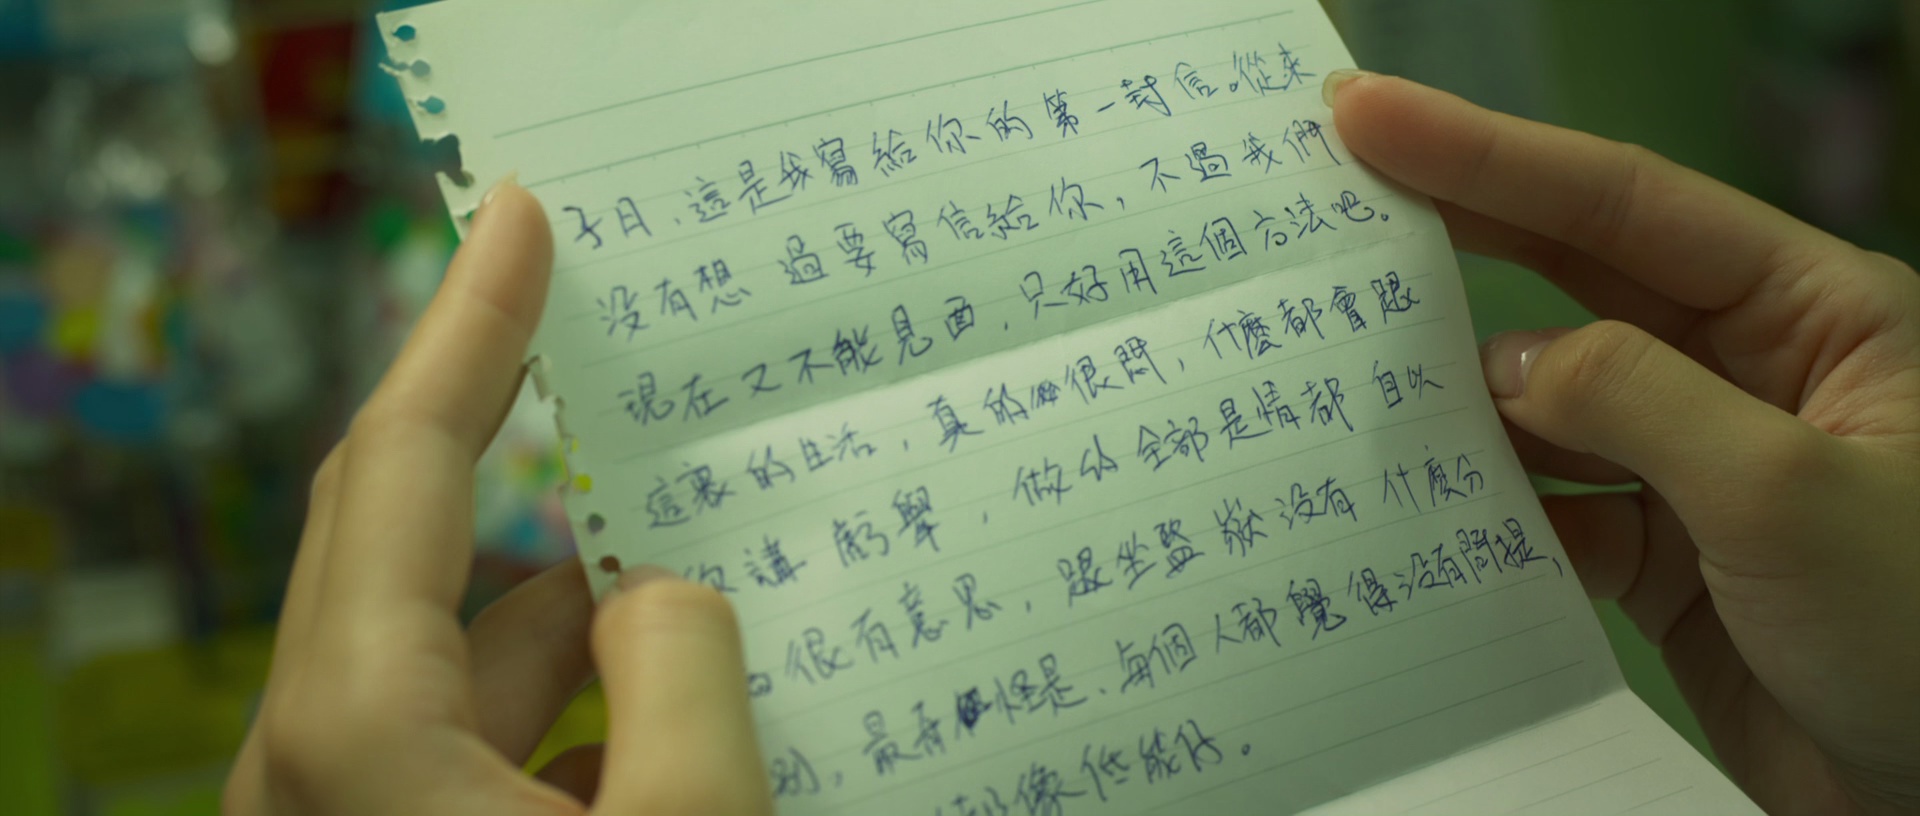 子日，這是我寫給你的第一封信。從來
沒有想過要寫信給你，不過我們
現在又不能見面，只好用這個方法吧。
這裏的生活，真的很悶，什麼都會跟
你講 ，做的全部是情都自以
很有意思，跟坐 沒有什麼分
別，最奇怪是，每個人都覺得沒有問提，
都像低能仔。